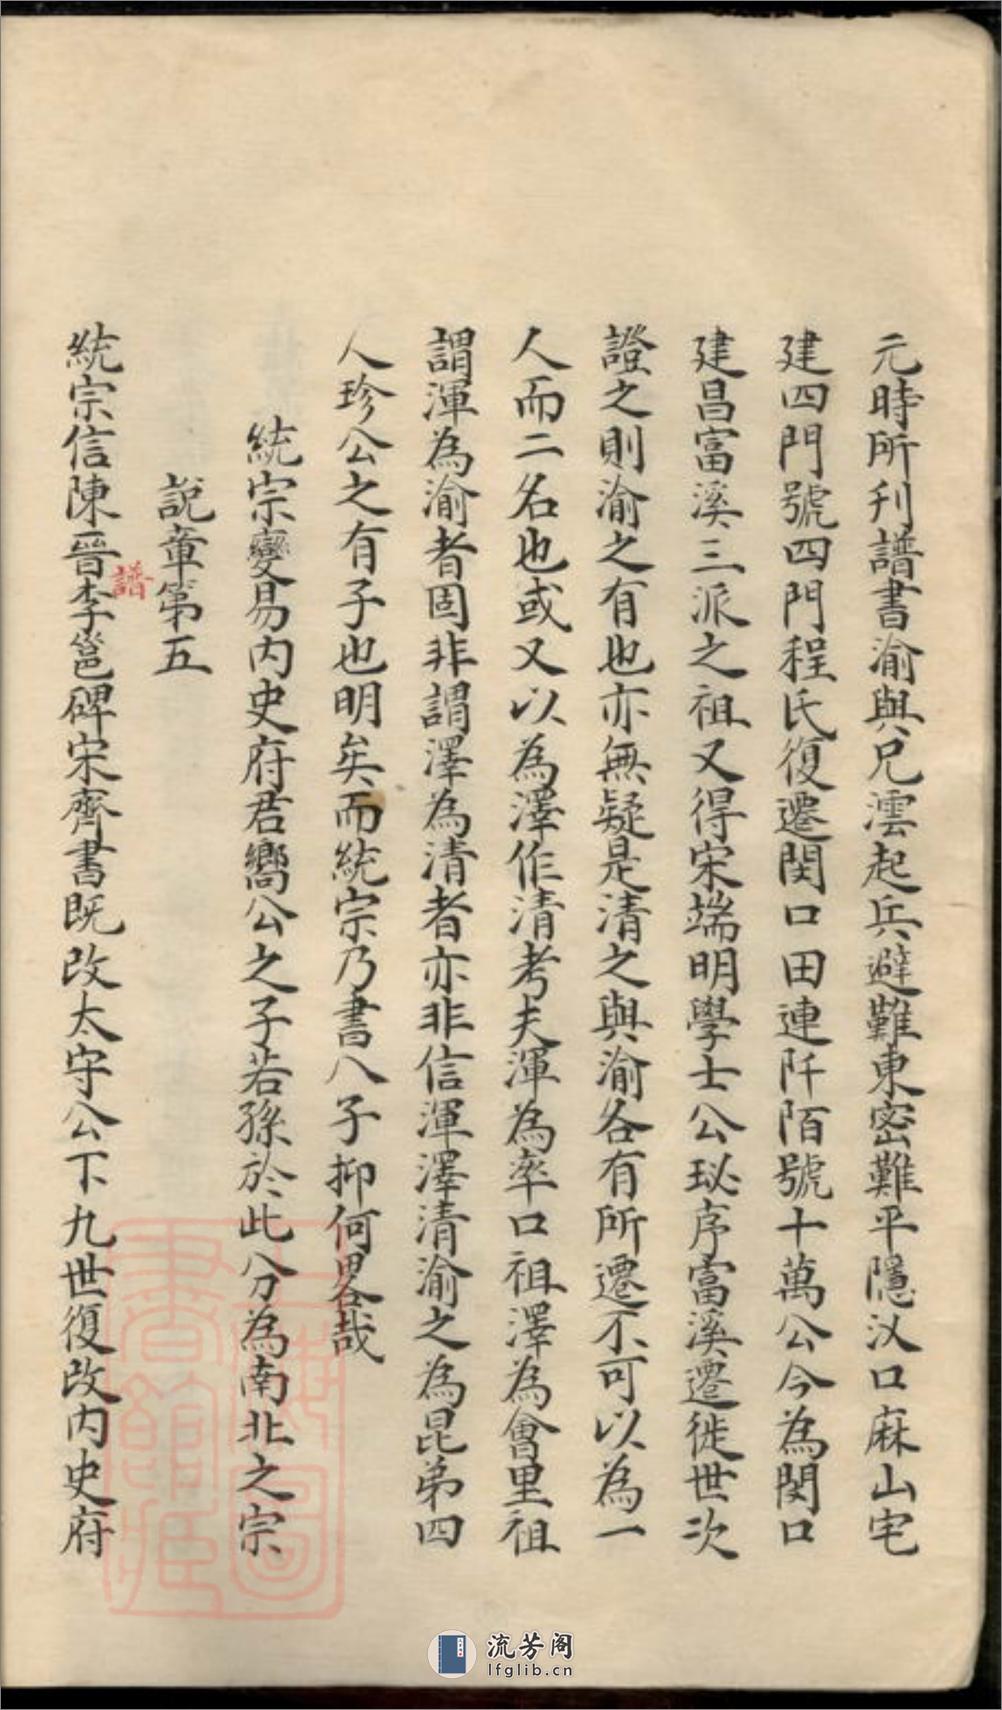 元時所刋譜書渝與兄澐起兵避難東密難平隱汊口麻山宅
建四門號四門程氏復遷閔口田連阡陌號十萬公今為閔口
建昌富溪三派之祖又得宋端明學士公珌序富溪遷徙世次
證之則渝之有也亦無疑是清之與渝各有所遷不可以為一
人而二名也或又以為澤作清考夫渾為率口祖澤為會里祖
謂渾為渝者固非謂澤為清者亦非信渾澤清渝之為昆弟四
人珍公之有子也明矣而統宗乃書八子抑何畧哉
統宗變易內史府君嚮公之子若孫於此分為南北之宗
說章第五
譜
統宗信陳晉李邕碑宋齊書既改太守公下九世復改內史府
上海圖書館藏
流芳阁
lfglib.cn